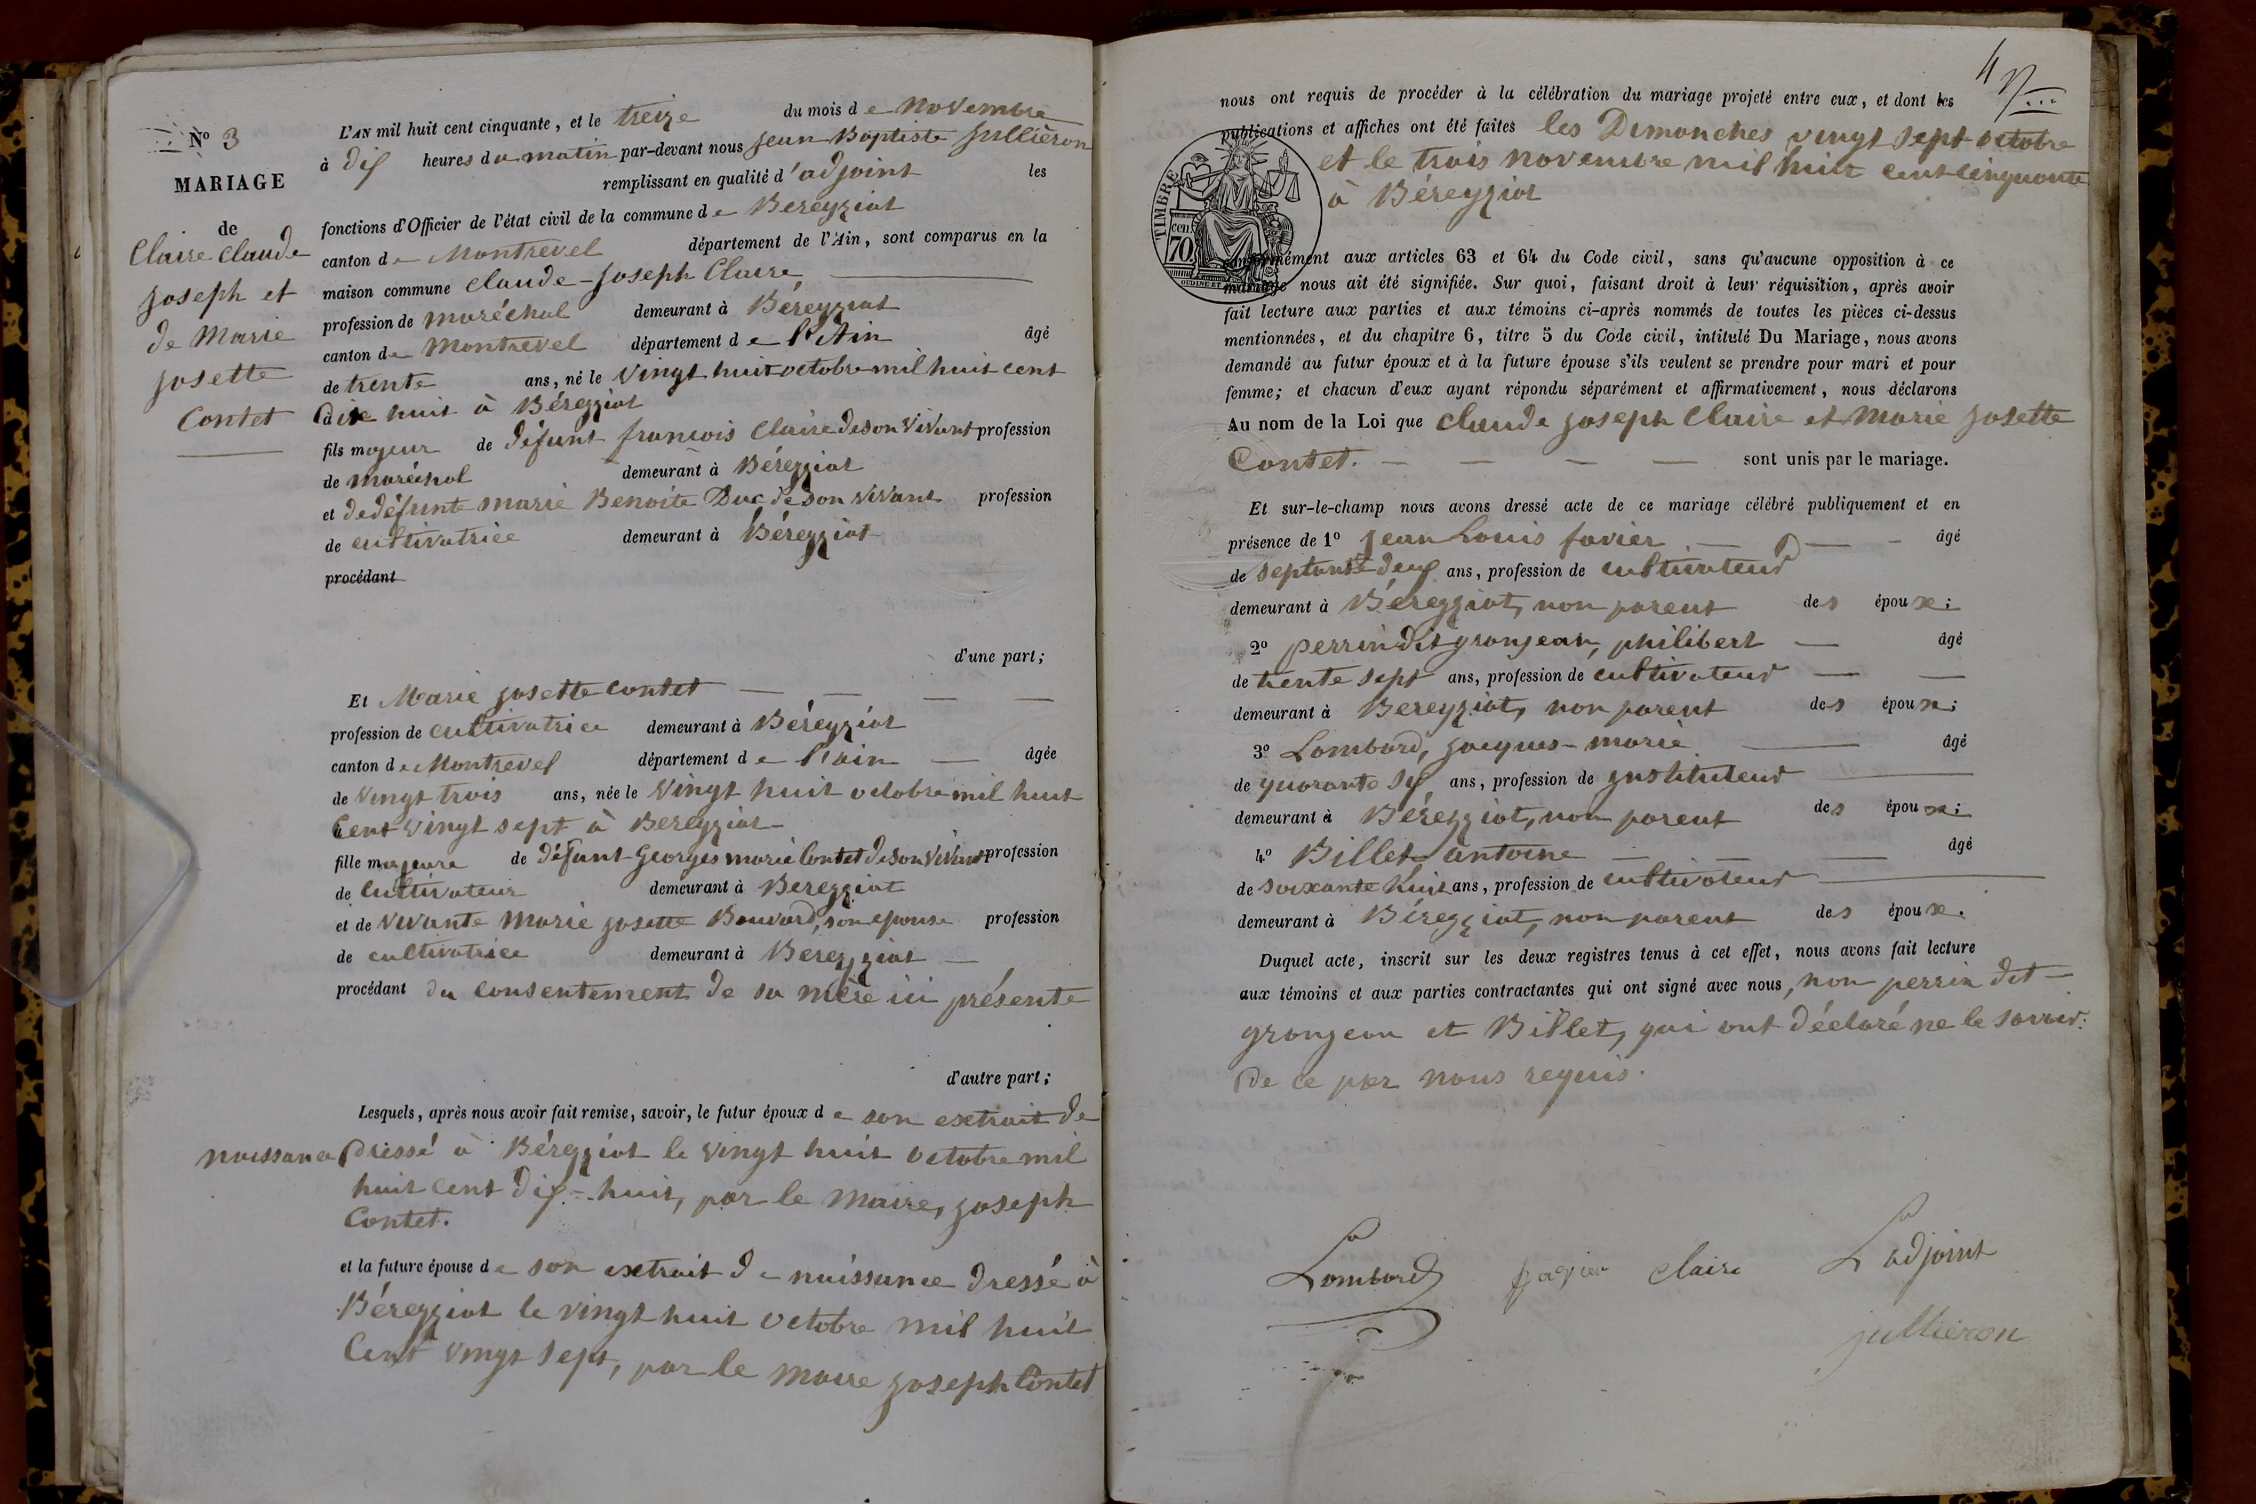 N° 3
MARIAGE
de
Claire Claude
Joseph et
de Marie
Josette
Contet
L'AN mil huit cent cinquante, et le treize du mois de Novembre
à dix heures du matin par-devant nous Jean Baptiste Jullièron
remplissant en qualité d'adjoint les
fonctions d'Officier de l'état civil de la commune de Béreyziat
canton de Montrevel département de l'Ain, sont comparus en la
maison commune Claude-Joseph Claire
profession de maréchal demeurant à Béreyziat
canton de Montrevel département de l'Ain âgé
de trente ans, né le vingt huit octobre mil huit cent
dix huit à Béreyziat
fils majeur de défunt françois Claire de son vivant profession
de maréchal demeurant à Béreyziat
et de défunte marie Benoite Duc de son vivant profession
de cultivatrice demeurant à Béreyziat
procédant
d'une part;
Et Marie Josette Contet
profession de cultivatrice demeurant à Béreyziat
canton de Montrevel département de l'ain âgée
de vingt trois ans, née le vingt huit octobre mil huit
cent vingt sept à Bereyziat
fille majeure de défunt Georges marie Contet de son vivant profession
de cultivateur demeurant à Bereyziat
et de vivante marie josette Bouvard, son epouse profession
de cultivatrice demeurant à Bereyziat
procédant du consentement de sa mère ici présente
d'autre part;
Lesquels, après nous avoir fait remise, savoir, le futur époux de son extrait de
naissance dressé à Béreyziat le vingt huit octobre mil
huit cent dix-huit, par le Maire, joseph
Contet.
et la future épouse de son extrait de naissance dressé à
Béreyziat le vingt huit octobre mil huit
Cent vingt sept, par le maire joseph Contet
4
nous ont requis de procéder à la célébration du mariage projeté entre eux, et dont les
publications et affiches ont été faites les Dimanches vingt sept octobre
et le trois novembre mil huit cent cinquante
à Béreyziat
TIMBRE
70 cen
conformément aux articles 63 et 64 du Code civil, sans qu'aucune opposition à ce
mariage nous ait été signifiée. Sur quoi, faisant droit à leur réquisition, après avoir
fait lecture aux parties et aux témoins ci-après nommés de toutes les pièces ci-dessus
mentionnées, et du chapitre 6, titre 5 du Code civil, intitulé Du Mariage, nous avons
demandé au futur époux et à la future épouse s'ils veulent se prendre pour mari et pour
femme; et chacun d'eux ayant répondu séparément et affirmativement, nous déclarons
Au nom de la Loi que Claude joseph Claire et Marie josette
Contet. sont unis par le mariage.
Et sur-le-champ nous avons dressé acte de ce mariage célébré publiquement et en
présence de 1° Jean Louis favier âgé
de septante deux ans, profession de cultivateur
demeurant à Béreyziat, non parent des époux;
2° perrin dit gronjean, philibert âgé
de trente sept ans, profession de cultivateur
demeurant à Bereyziat, non parent des époux;
3° Lombard, jacques-marie âgé
de quarante six ans, profession de instituteur
demeurant à Béreyziat, non parent des époux;
4° Billet antoine âgé
de soixante huit ans, profession de cultivateur
demeurant à Béreyziat, non parent des époux.
Duquel acte, inscrit sur les deux registres tenus à cet effet, nous avons fait lecture
aux témoins et aux parties contractantes qui ont signé avec nous, non perrin dit
gronjean et Billet, qui ont déclaré ne le savoir.
De ce par nous requis.
Lombard favier Claire L'adjoint
Jullieron